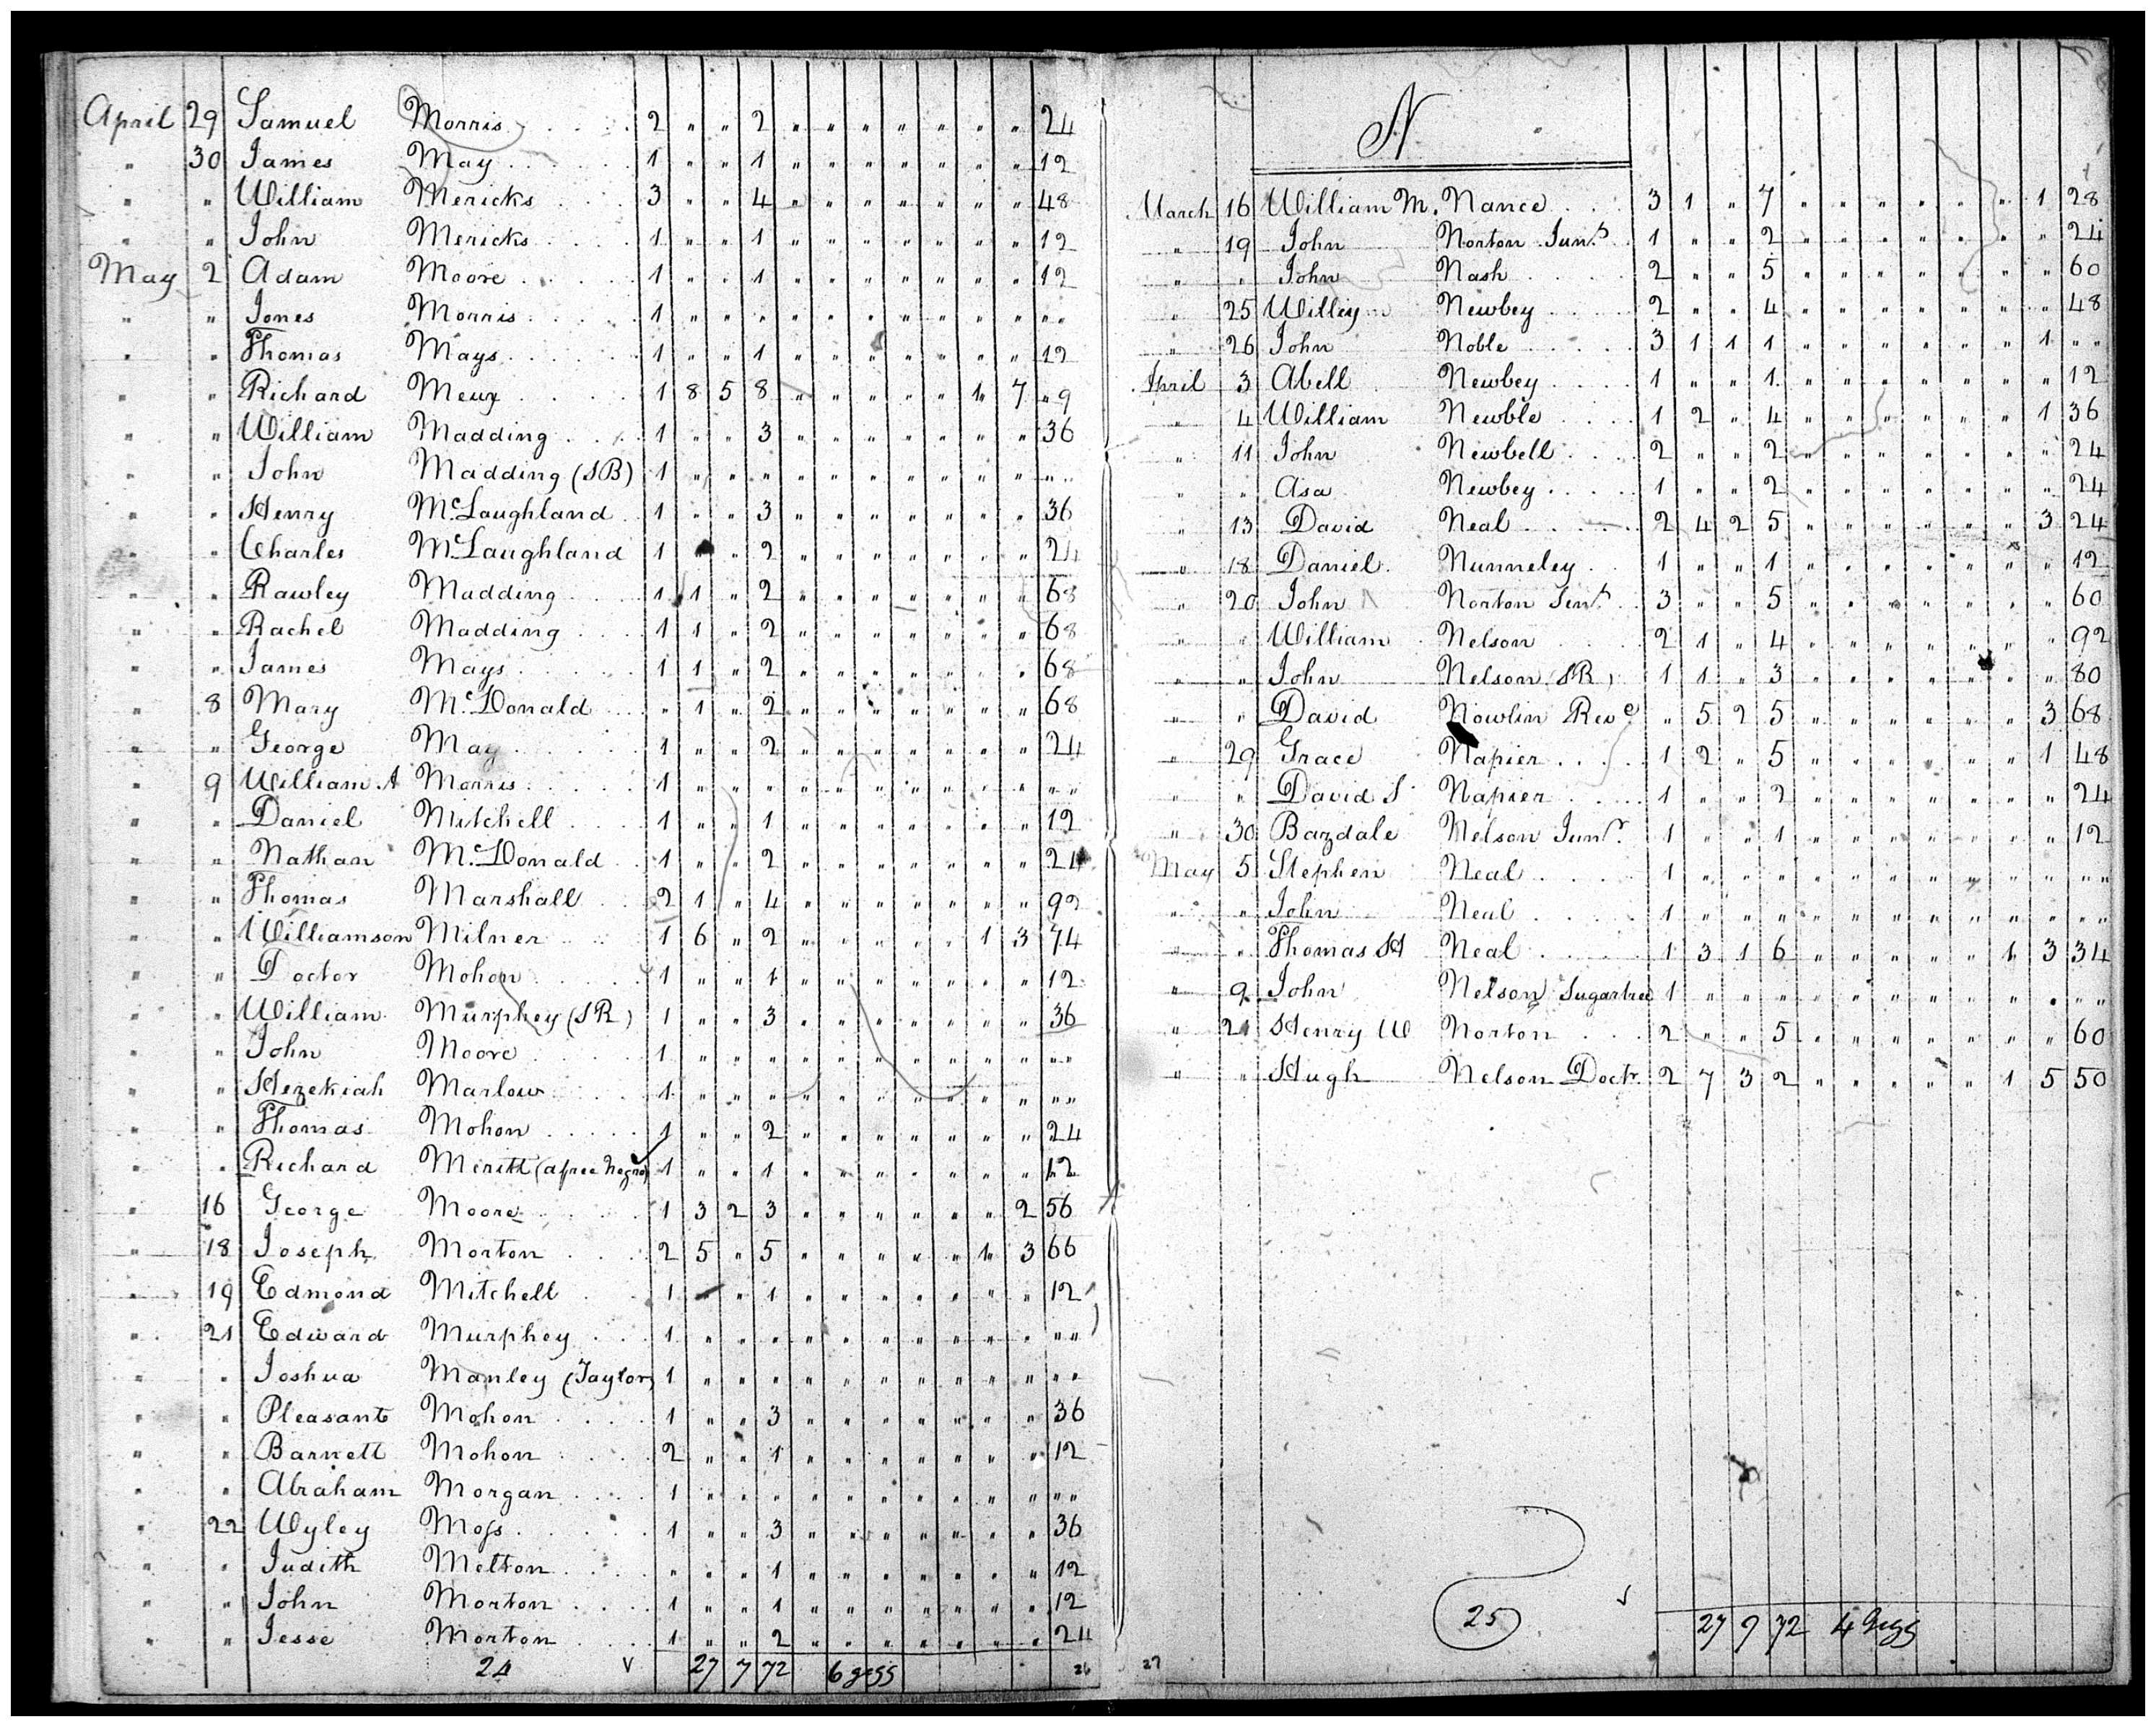 April 29 Samuel Morris 2 " " 2 " " " " " " " 24
" 30 James May 1 " " 1 " " " " " " " 12
" " William Mericks 3 " " 4 " " " " " " " 48
" " John Mericks 1 " " 1 " " " " " " " 12
May 2 Adam Moore 1 " " 1 " " " " " " " 12
" " Jones Morris 1 " " " " " " " " " " " "
" " Thomas Mays 1 " " 1 " " " " " " " 12
" " Richard Meux 1 8 5 8 " " " " " 1 7 " 9
" " William Madding 1 " " 3 " " " " " " " 36
" " John Madding (SB) 1 " " " " " " " " " " " "
" " Henry McLaughland 1 " " 3 " " " " " " " 36
" " Charles McLaughland 1 " " 2 " " " " " " " 24
" " Rawley Madding 1 1 " 2 " " " " " " " 68
" " Rachel Madding 1 1 " 2 " " " " " " " 68
" " James Mays 1 1 " 2 " " " " " " " 68
" 8 Mary McDonald " 1 " 2 " " " " " " " 68
" " George May 1 " " 2 " " " " " " " 24
" 9 William A Morris 1 " " " " " " " " " " " "
" " Daniel Mitchell 1 " " 1 " " " " " " " 12
" " Nathan McDonald 1 " " 2 " " " " " " " 24
" " Thomas Marshall 2 1 " 4 " " " " " " " 92
" " Williamson Milner 1 6 " 2 " " " " " 1 3 74
" " Doctor Mohon 1 " " 1 " " " " " " " 12
" " William Murphey (SR) 1 " " 3 " " " " " " " 36
" " John Moore 1 " " " " " " " " " " " "
" " Hezekiah Marlow 1 " " " " " " " " " " " "
" " Thomas Mohon 1 " " 2 " " " " " " " 24
" " Richard Meritt (a free Negro) 1 " " 1 " " " " " " " 12
" 16 George Moore 1 3 2 3 " " " " " " 2 56
" 18 Joseph Morton 2 5 " 5 " " " " " 1 3 66
" 19 Edmond Mitchell 1 " " 1 " " " " " " " 12
" 21 Edward Murphey 1 " " " " " " " " " " " "
" " Joshua Manley (Taylor) 1 " " " " " " " " " " " "
" " Pleasant Mohon 1 " " 3 " " " " " " " 36
" " Barnett Mohon 2 " " 1 " " " " " " " 12
" " Abraham Morgan 1 " " " " " " " " " " " "
" 22 Wyley Moss 1 " " 3 " " " " " " " 36
" " Judith Melton " " " 1 " " " " " " " 12
" " John Morton 1 " " 1 " " " " " " " 12
" " Jesse Morton 1 " " 2 " " " " " " " 24
24 27 7 72 6 gigs 26
N
March 16 William M. Nance 3 1 " 7 " " " " " " 1 28
" 19 John Norton Junr 1 " " 2 " " " " " " " 24
" " John Nash 2 " " 5 " " " " " " " 60
" 25 Willey Newbey 2 " " 4 " " " " " " " 48
" 26 John Noble 3 1 1 1 " " " " " " 1 " "
April 3 Abell Newbey 1 " " 1 " " " " " " " 12
" 4 William Newble 1 2 " 4 " " " " " " 1 36
" 11 John Newbell 2 " " 2 " " " " " " " 24
" " Asa Newbey 1 " " 2 " " " " " " " 24
" 13 David Neal 2 4 2 5 " " " " " " 3 24
" 18 Daniel Nunneley 1 " " 1 " " " " " " " 12
" 20 John Norton Senr 3 " " 5 " " " " " " " 60
" " William Nelson 2 1 " 4 " " " " " " " 92
" " John Nelson (SR) 1 1 " 3 " " " " " " " 80
" " David Nowlin Reve " 5 2 5 " " " " " " 3 68
" 29 Grace Napier 1 2 " 5 " " " " " " 1 48
" " David S Napier 1 " " 2 " " " " " " " 24
" 30 Bazdale Nelson Junr. 1 " " 1 " " " " " " " 12
May 5 Stephen Neal 1 " " " " " " " " " " " "
" " John Neal 1 " " " " " " " " " " " "
" " Thomas H Neal 1 3 1 6 " " " " " 1 3 34
" 9 John Nelson Sugartree 1 " " " " " " " " " " " "
" 21 Henry W Norton 2 " " 5 " " " " " " " 60
" " Hugh Nelson Doctr. 2 7 3 2 " " " " " 1 5 50
25 27 9 72 4 Gigs
27